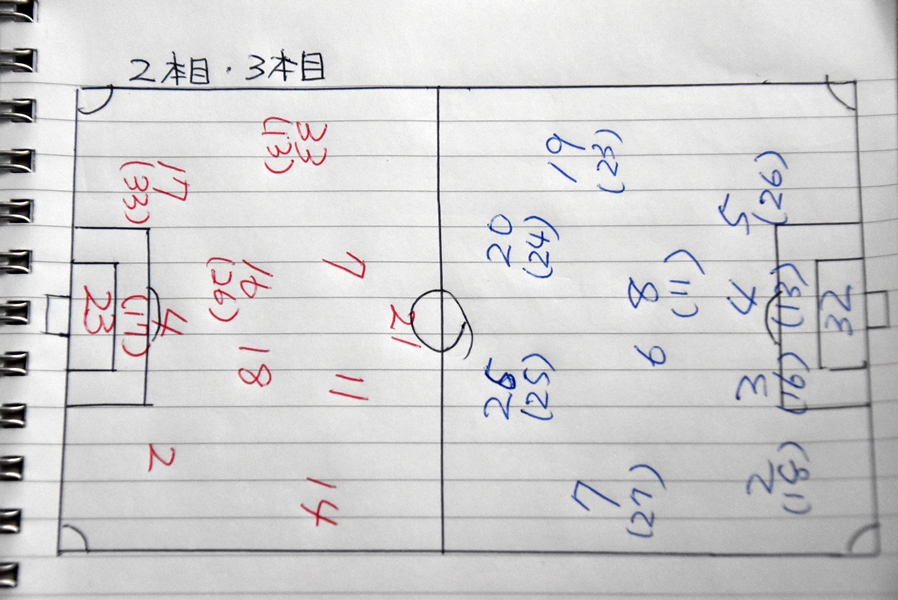 2本目・3本目
33
(13)
17
(33)
7
16
(26)
21
23
4
(17)
18
11
2
14
19
(23)
20
(24)
5
(26)
8
(11)
4
(13)
32
6
(25)
3
(16)
7
(27)
2
(18)